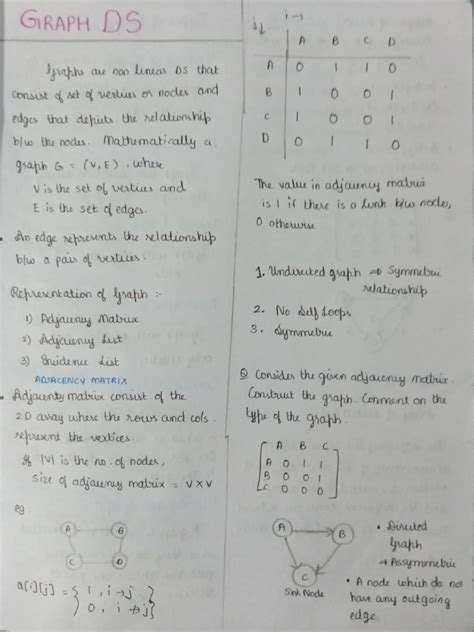 GRAPH DS
Graphs are non linear DS that
consist of set of vertices or nodes and
edges that depicts the relationship
b/w the nodes. Mathematically a
graph G = (V, E), where
V is the set of vertices and
E is the set of edges.
• An edge represents the relationship
b/w a pair of vertices.
Representation of Graph :-
1) Adjacency Matrix
2) Adjacency List
3) Incidence List
ADJACENCY MATRIX
• Adjacency matrix consist of the
2D array where the rows and cols.
represent the vertices.
If |V| is the no. of nodes,
Size of adjacency matrix = V x V
eg:
A B
C D
a[i][j] = { 1, i→j }
{ 0, i↛j }
j↓ i→
A B C D
A 0 1 1 0
B 1 0 0 1
C 1 0 0 1
D 0 1 1 0
The value in adjacency matrix
is 1 if there is a link b/w nodes,
0 otherwise
1. Undirected graph ⇒ Symmetric
relationship
2. No Self Loops
3. Symmetric
Q Consider the given adjacency matrix.
Construct the graph. Comment on the
type of the graph.
A B C
A 0 1 1
B 0 0 1
C 0 0 0
A B
C
Sink Node
• Directed
graph
→ Assymmetric
• A node which do not
have any outgoing
edge.